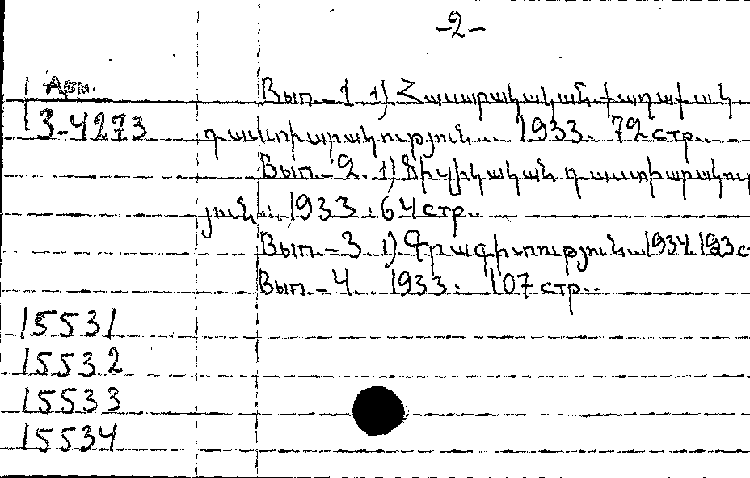 -2-
Арм.
Вып. - 1 1) Հասարակական-քաղաքակ
3-4273
դաստիարակություն.. 1933. 72 стр.
Вып. - 2. 1) Ֆիզիկական դաստիարակու
յուն.. 1933. 64 стр.
Вып. - 3 1) Գրագիտություն.. 1934. 193 с
Вып. - 4. 1933. 107 стр.
15531
15532
15533
15534